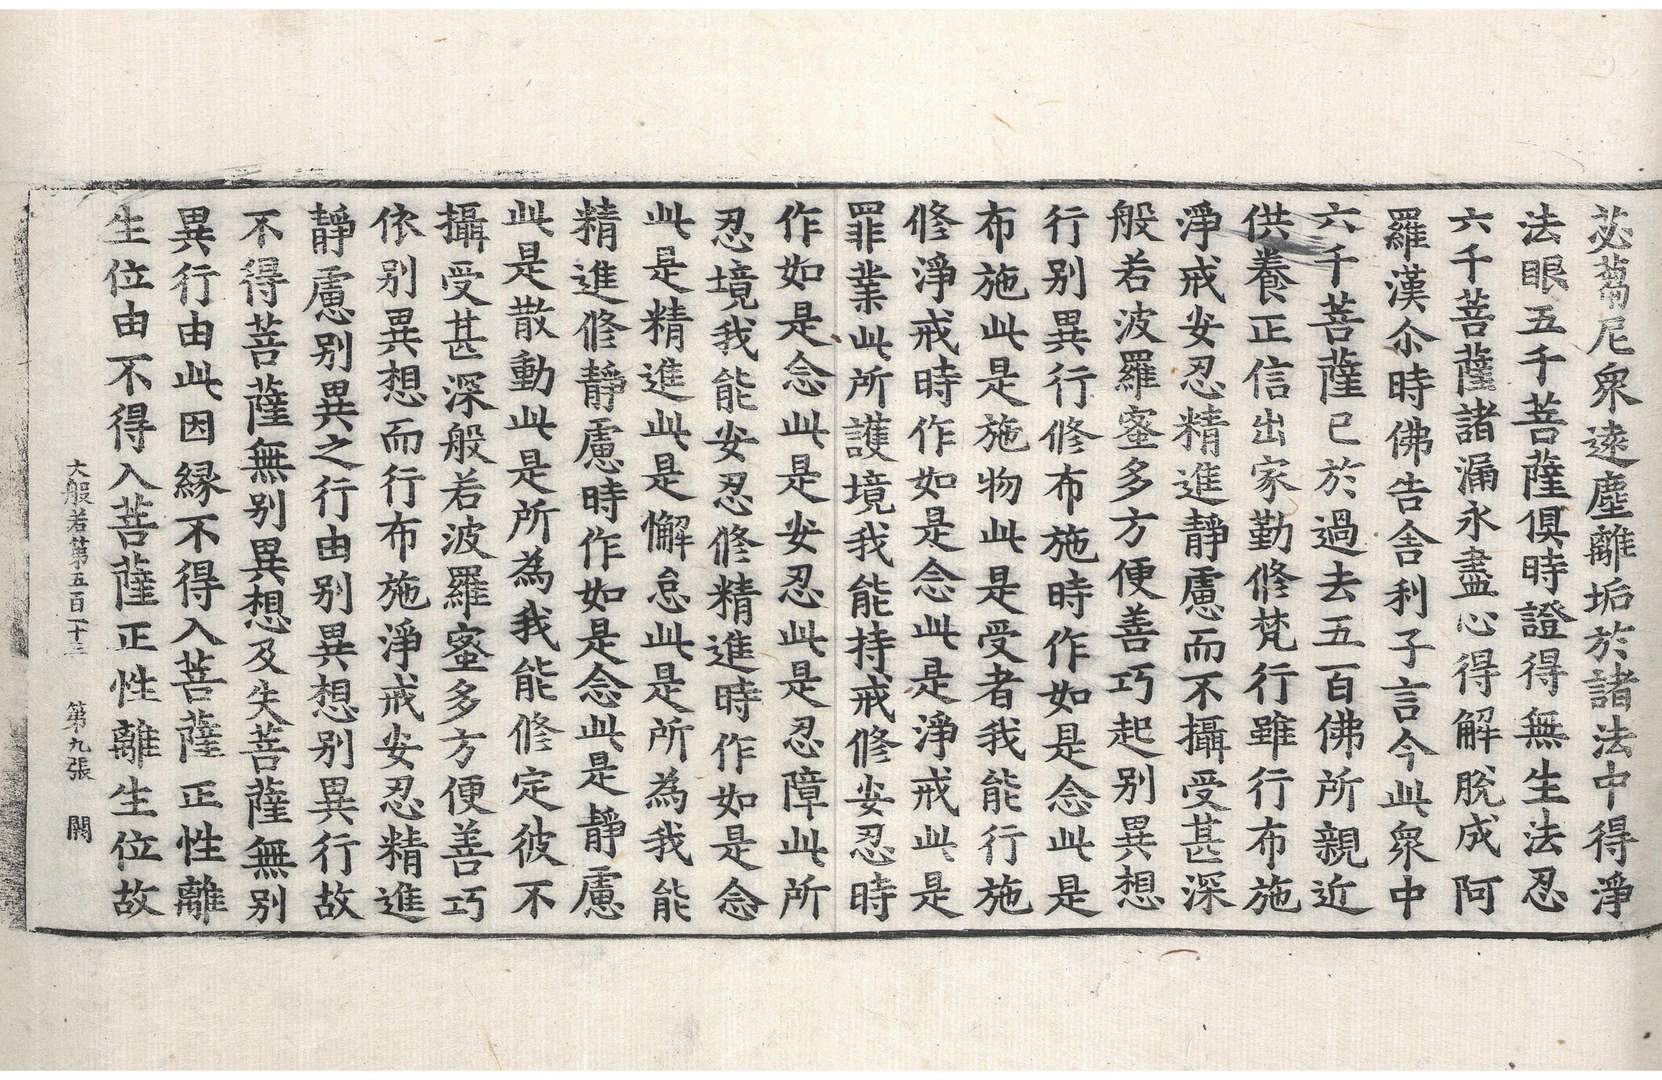 苾蒭尼眾遠塵離垢於諸法中得淨
法眼五千菩薩俱時證得無生法忍
六千菩薩諸漏永盡心得解脫成阿
羅漢尒時佛告舍利子言今此眾中
六千菩薩已於過去五百佛所親近
供養正信出家勤修梵行雖行布施
淨戒安忍精進靜慮而不攝受甚深
般若波羅蜜多方便善巧起別異想
行別異行修布施時作如是念此是
布施此是施物此是受者我能行施
修淨戒時作如是念此是淨戒此是
罪業此所護境我能持戒修安忍時
作如是念此是安忍此是忍障此所
忍境我能安忍修精進時作如是念
此是精進此是懈怠此是所為我能
精進修靜慮時作如是念此是靜慮
此是散動此是所為我能修定彼不
攝受甚深般若波羅蜜多方便善巧
依別異想而行布施淨戒安忍精進
靜慮別異之行由別異想別異行故
不得菩薩無別異想及失菩薩無別
異行由此因緣不得入菩薩正性離
生位由不得入菩薩正性離生位故
大般若第五百十三 第九張